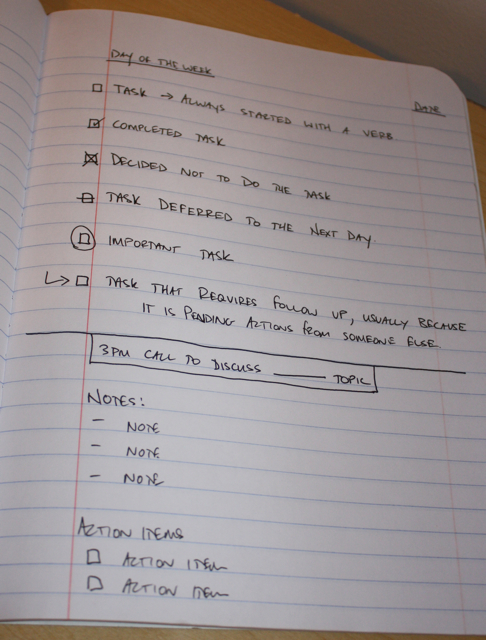 DAY OF THE WEEK
DATE
TASK → ALWAYS STARTED WITH A VERB
COMPLETED TASK
DECIDED NOT TO DO THE TASK
TASK DEFERRED TO THE NEXT DAY.
IMPORTANT TASK
TASK THAT REQUIRES FOLLOW UP, USUALLY BECAUSE
IT IS PENDING ACTIONS FROM SOMEONE ELSE
3PM CALL TO DISCUSS ______ TOPIC
NOTES:
- NOTE
- NOTE
- NOTE
ACTION ITEMS
ACTION ITEM
ACTION ITEM